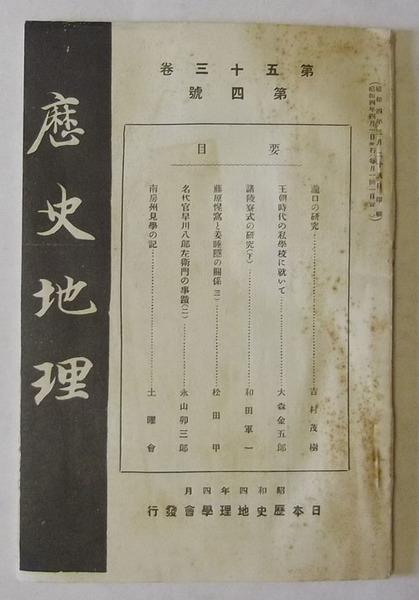 第五十三卷
第四號
要目
瀧口の研究……吉村茂樹
王朝時代の私學校に就いて……大森金五郎
諸陵寮式の研究(下)……和田軍一
藤原惺窩と姜睡隱の關係(三)……松田甲
名代官早川八郎左衛門の事蹟(二)……永山卯三郎
南房州見學の記……土曜會
昭和四年四月
日本歷史地理學會發行
歷史地理
昭和四年四月一日發行